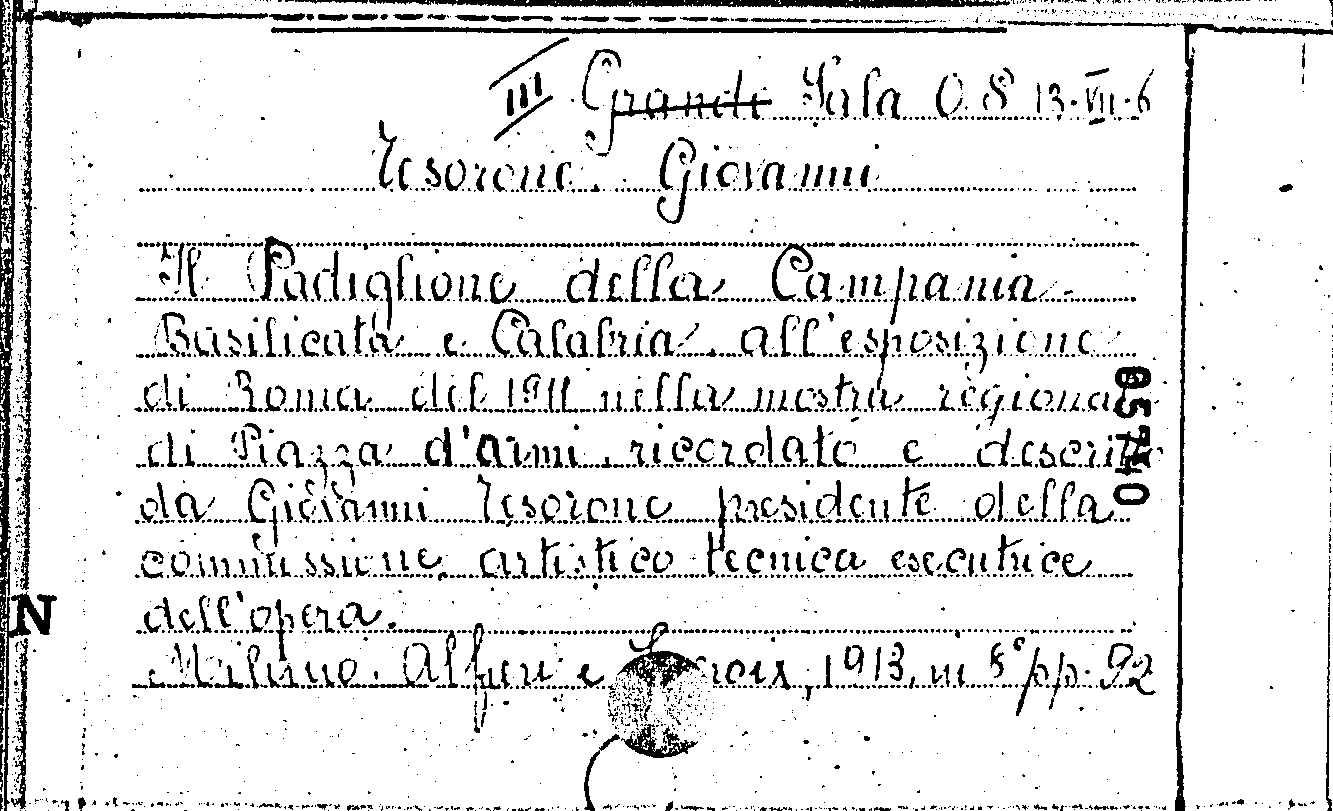 III Grande Sala O. 8 13.VII.6
Tesorone Giovanni
Il Padiglione della Campania
Basilicata e Calabria all'esposizione
di Roma del 1911 nella mostra regionale
di Piazza d'armi, ricordato e descritto
da Giovanni Tesorone presidente della
commissione artistico tecnica esecutrice
dell'opera.
Milano. Alfieri e Lacroix, 1913, in 8° pp. 92
057140
N